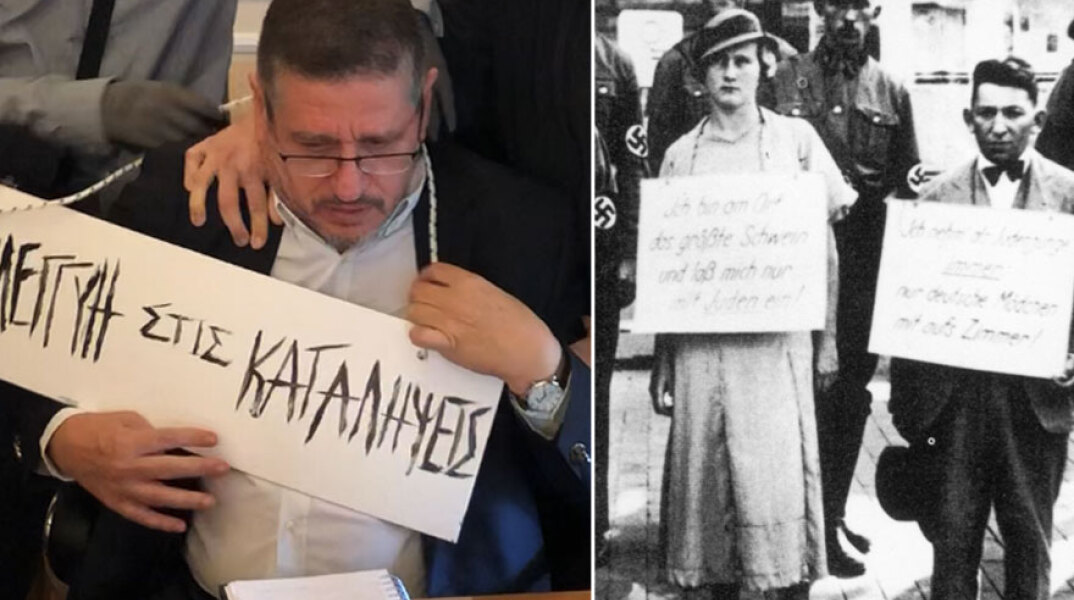 ΛΕΓΓΥΗ ΣΤΙΣ ΚΑΤΑΛΗΨΕΙΣ
Ich bin am Ort
das größte Schwein
und laß mich nur
mit Juden ein!
immer
nur deutsche Mädchen
mit aufs Zimmer!